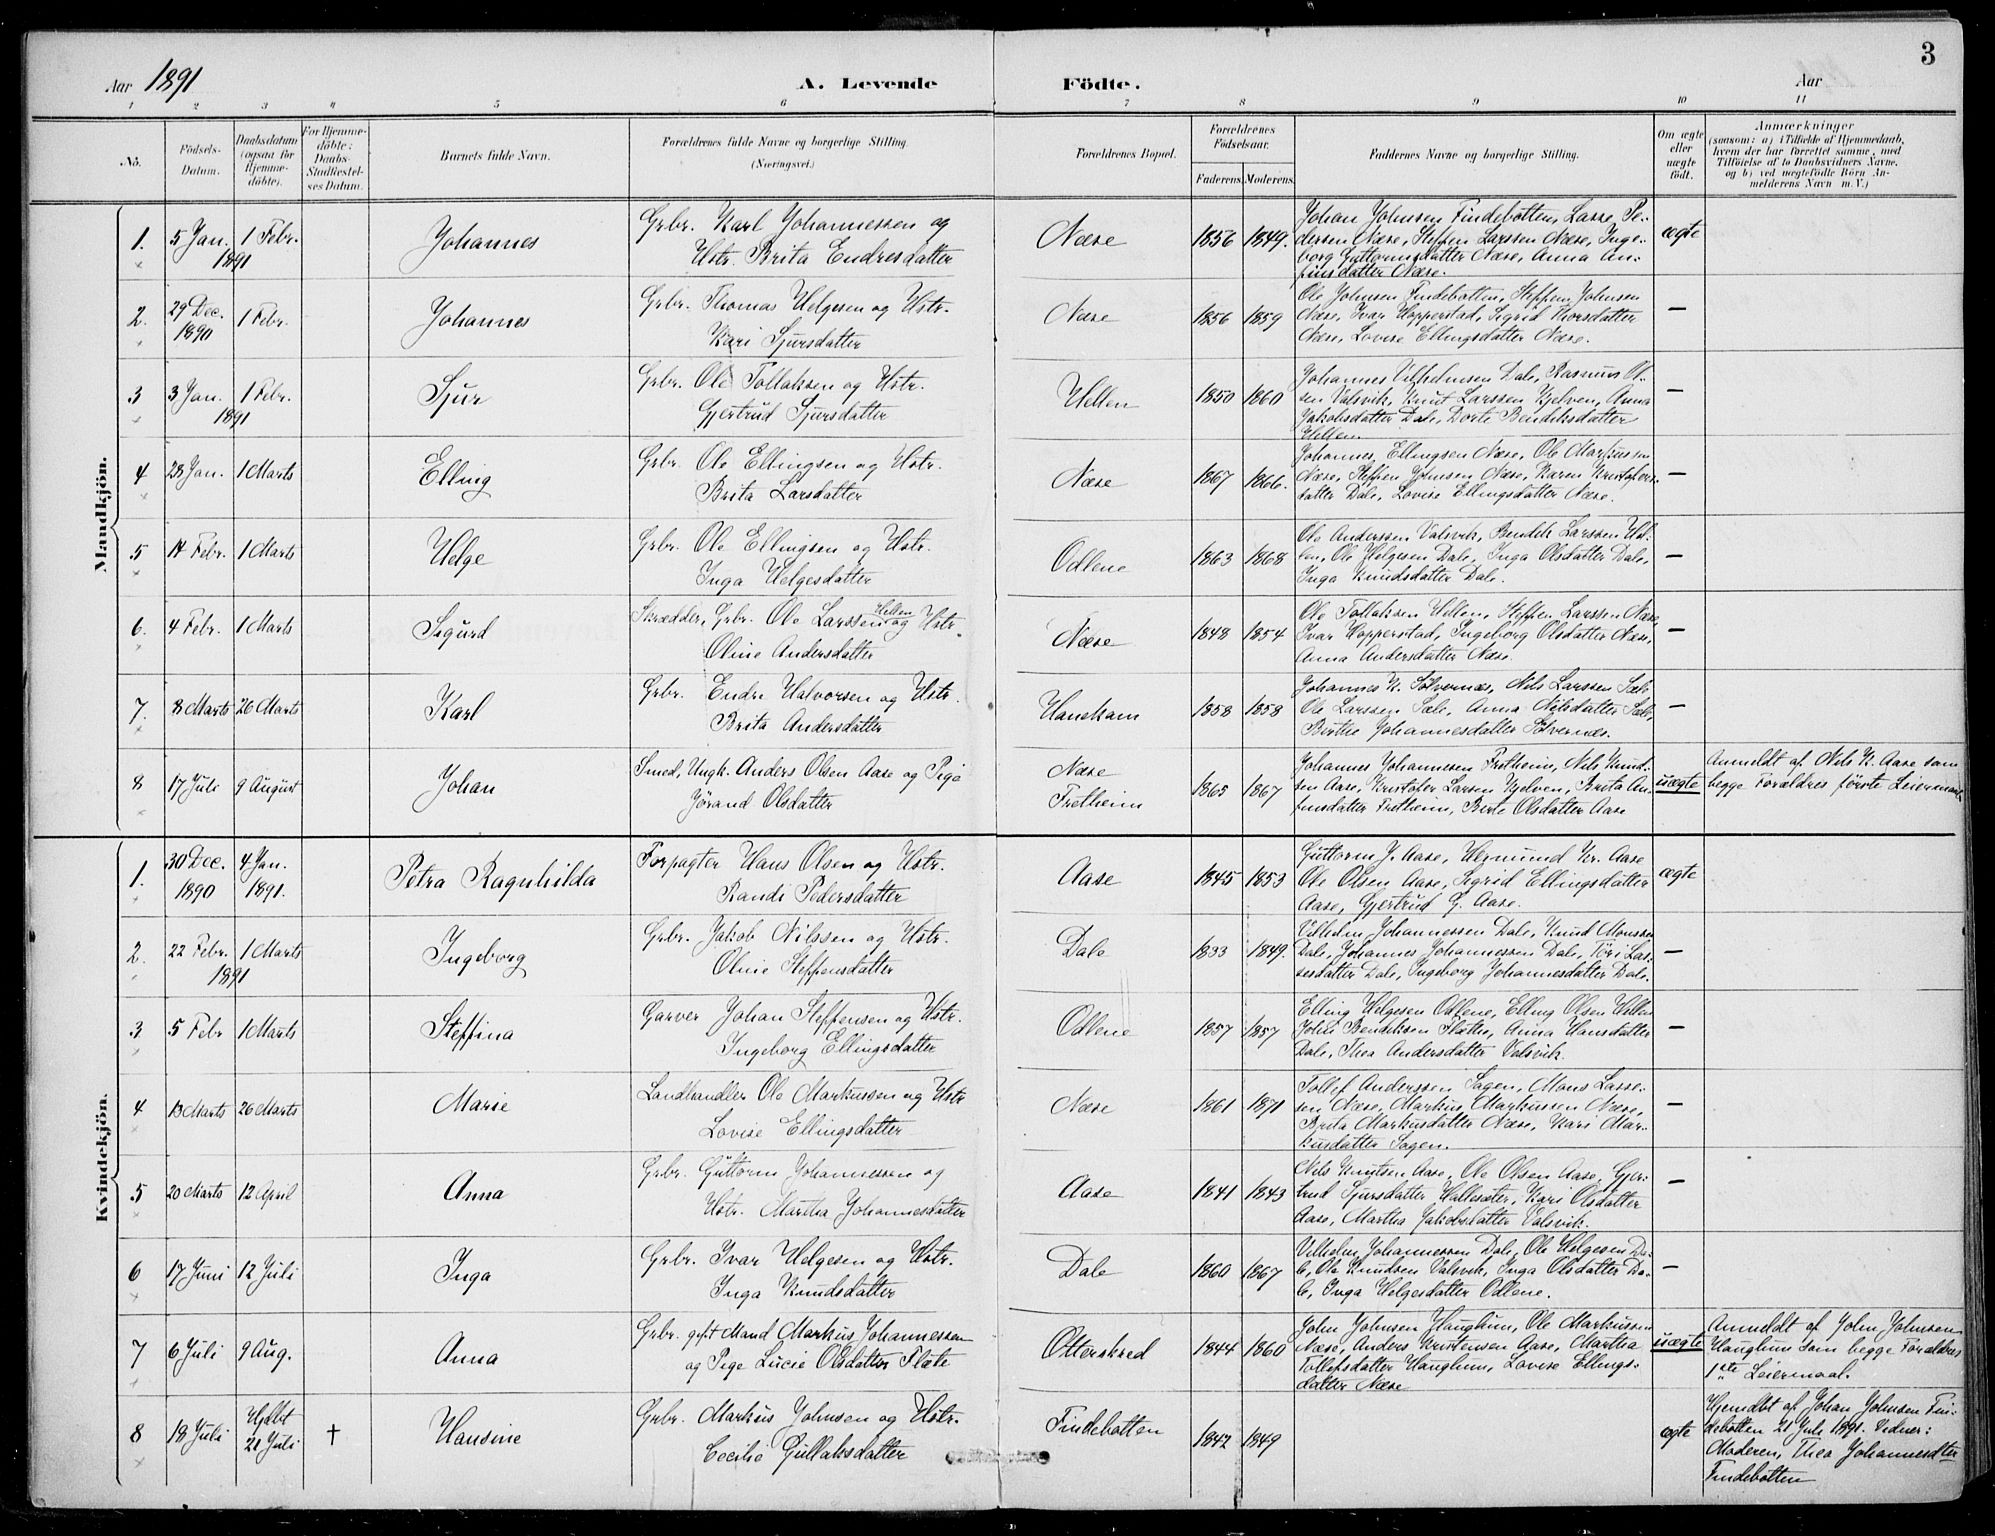 3
Aar 1891 A. Levende Födte. Aar
1 2 3 4 5 6 7 8 9 10 11
No.
Födsels-Datum.
Daabsdatum (ogsaa for Hjemme-döbte).
For Hjemme-döbte: Daabs-Stadfæstel-ses Datum.
Barnets fulde Navn.
Forældrenes fulde Navne og borgerlige Stilling. (Næringsvei.)
Forældrenes Bopæl.
Forældrenes Födselsaar.
Faderens. Moderens.
Faddernes Navne og borgerlige Stilling.
Om ægte eller uægte födt.
Anmærkninger
(saasom: a) i Tilfælde af Hjemmedaab,
hvem der har forrettet samme, med
Tilföielse af to Daabsvidners Navne,
og b) ved uægtefödte Börn An-
melderens Navn m. V.)
Mandkjön.
1. 5 Jan. 1891 1 Febr. Johannes
Grbr. Karl Johannessen og
Hstr. Brita Endresdatter
Næse 1856 1849.
Johan Johnsen Findebotten, Lasse Pe-
dersen Næse, Steffen Larssen Næse, Inge-
borg Guttormsdatter Næse, Anna An-
finsdatter Næse.
ægte
2. 29 Dec. 1890 1 Febr. Johannes
Grbr. Thomas Helgesen og Hstr.
Kari Sjursdatter
Næse 1856 1859
Ole Johnsen Findebotten, Steffen Johnsen
Næse, Ivar Hopperstad, Sigrid Thorsdatter
Næse, Lovise Ellingsdatter Næse.
—
3 3 Jan. 1891 1 Febr. Sjur
Grbr. Ole Tollaksen og Hstr.
Gjertrud Sjursdatter
Hellen 1850 1860
Johannes Vilhelmsen Dale, Rasmus Ol-
sen Valsvik, Knut Larssen Kjelven, Anna
Jakobsdatter Dale, Dorte Bendiksdatter
Hellem
—
4 28 Jan. 1 Marts Elling
Grbr. Ole Ellingsen og Hstr.
Brita Larsdatter
Næse 1867 1866.
Johannes Ellingsen Næse, Ole Markussen
Næse, Steffen Johnsen Næse, Karen Kristofers-
datter Dale, Lovise Ellingsdatter Næse.
—
5 14 Febr. 1 Marts Helge
Grbr. Ole Ellingsen og Hstr.
Inga Helgesdatter
Odlene 1863 1868
Ole Anderssen Valsvik, Bendik Larssen Hel-
len, Ole Helgesen Dale, Inga Olsdatter Dale,
Inga Knudsdatter Dale.
—
6. 4 Febr. 1 Marts Sigurd
Skrædder, Grbr. Ole Larssen Hellen og Hstr.
Oline Andersdatter
Næse 1848 1854
Ole Tollaksen Hellen, Steffen Larssen Næse,
Ivar Hopperstad, Ingeborg Olsdatter Næse,
Anna Andersdatter Næse.
—
7. 8 Marts 26 Marts Karl
Grbr. Endre Halvorsen og Hstr.
Brita Andersdatter
Hanekam 1858 1858
Johannes K. Sølvernes, Nils Larssen Sæle
Ole Larssen Sæle, Anna Nilsdatter Sæle,
Birthe Johannesdatter Sølvernes.
—
8 17 Juli 9 August Johan
Smed, Ungk. Anders Olsen Aase og Pige
Jørand Olsdatter
Næse
Fretheim
1865 1867
Johannes Johannessen Fretheim, Nils Knud-
sen Aase, Kristofer Larsen Kjelven, Brita An-
finsdatter Fretheim, Birte Olsdatter Aase
uægte
Anmeldt af Nils K. Aase som
begge Forældres første Leiermaal
Kvindekjön.
1. 30 Dec. 1890 4 Jan. 1891. Petra Ragnhilda
Forpagter Hans Olsen og Hstr.
Randi Pedersdatter
Aase 1845 1853
Guttorm J. Aase, Hermund Kr. Aase
Ole Olsen Aase, Sigrid Ellingsdatter
Aase, Gjertrud G. Aase.
ægte
2. 22 Febr. 1891 1 Marts Ingeborg
Grbr. Jakob Nilssen og Hstr.
Oline Steffensdatter
Dale 1833 1849.
Vilhelm Johannessen Dale, Knud Monssen
Dale, Johannes Johannessen Dale, Töri Las-
sesdatter Dale, Ingeborg Johannesdatter Dale.
—
3 5 Febr 1 Marts Steffina
Garver Johan Steffensen og Hstr.
Ingeborg Ellingsdatter
Odlene 1857 1857
Elling Helgesen Odlene, Elling Olsen Hellen
John Bendiksen Flæthe, Anna Hansdatter
Dale, Thea Andersdatter Valsvik.
—
4 13 Marts 26 Marts Marie
Landhandler Ole Markussen og Hstr
Lovise Ellingsdatter
Næse 1861 1871
Tollef Anderssen Sagen, Mons Lasse-
sen Næse, Markus Markussen Næse,
Brita Markusdatter Næse, Kari Mar-
kusdatter Sagen.
—
5 20 Marts 12 April Anna
Grbr. Guttorm Johannessen og
Hstr. Martha Johannesdatter
Aase 1841 1843
Nils Knutsen Aase, Ole Olsen Aase, Gjer-
trud Sjursdatter Hallesæter, Kari Olsdatter
Aase, Martha Jakobsdatter Valsvik.
—
6 17 Juni 12 Juli Inga
Grbr. Ivar Helgesen og Hstr.
Inga Knudsdatter
Dale 1860 1867
Vilhelm Johannessen Dale, Ole Helgesen Da-
le, Ole Knudsen Valsvik, Inga Olsdatter Da-
le, Inga Helgesdatter Odlene.
—
7 6 Juli 9 Aug. Anna
Grbr. gift Mand Markus Johannessen
og Pige Lucie Olsdatter Flæte
Otterskred 1844 1860
John Johnsen Hauglum, Ole Markussen
Næse, Anders Kristensen Aase, Martha
Tollefsdatter Hauglum, Lovise Ellings-
datter Næse
uægte
Anmeldt af John Johnsen
Hauglum som begge Forældres
1ste Leiermaal.
8 18 Juli Hjdbt 21 Juli † Hansine
Grbr. Markus Johnsen og Hstr.
Cecilie Gullaksdatter
Findebotten 1842 1849
ægte
Hjemdbt af Johan Johnsen Fin-
debotten 21 Juli 1891. Vidner:
Moderen, Thea Johannesdter
Findebotten